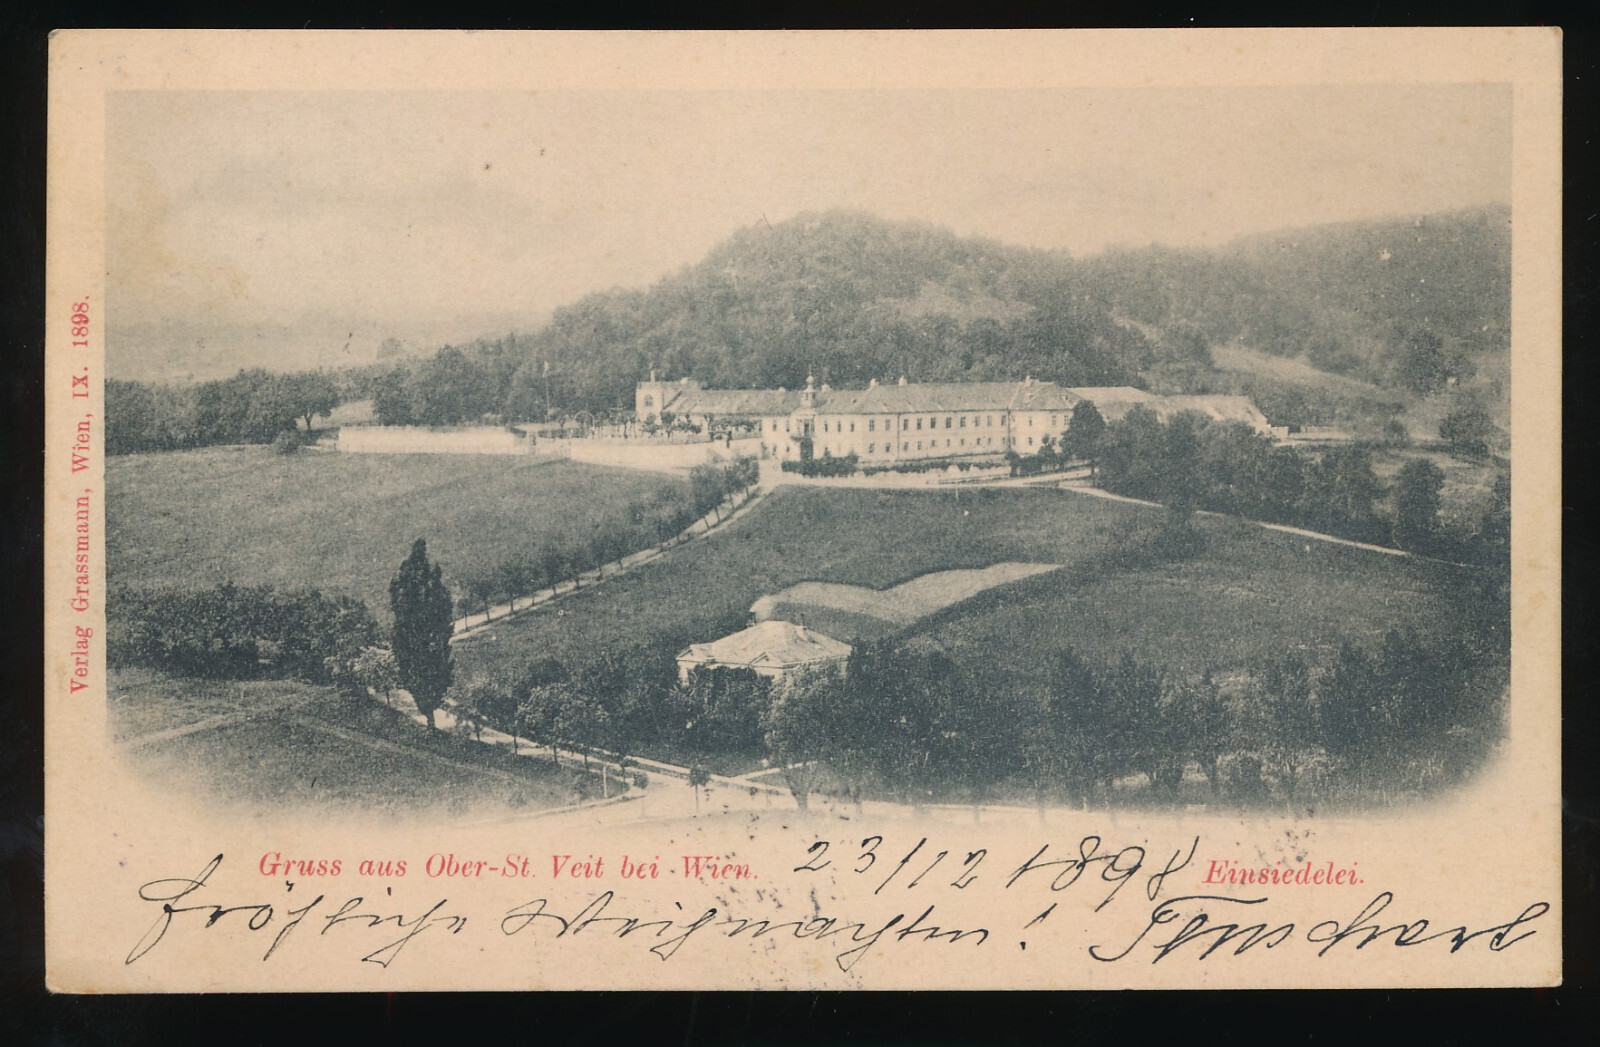 Verlag Grassmann, Wien, IX. 1898.
Gruss aus Ober-St. Veit bei Wien. 23/12 1898 Einsiedelei.
Fröhliche Weihnachten!